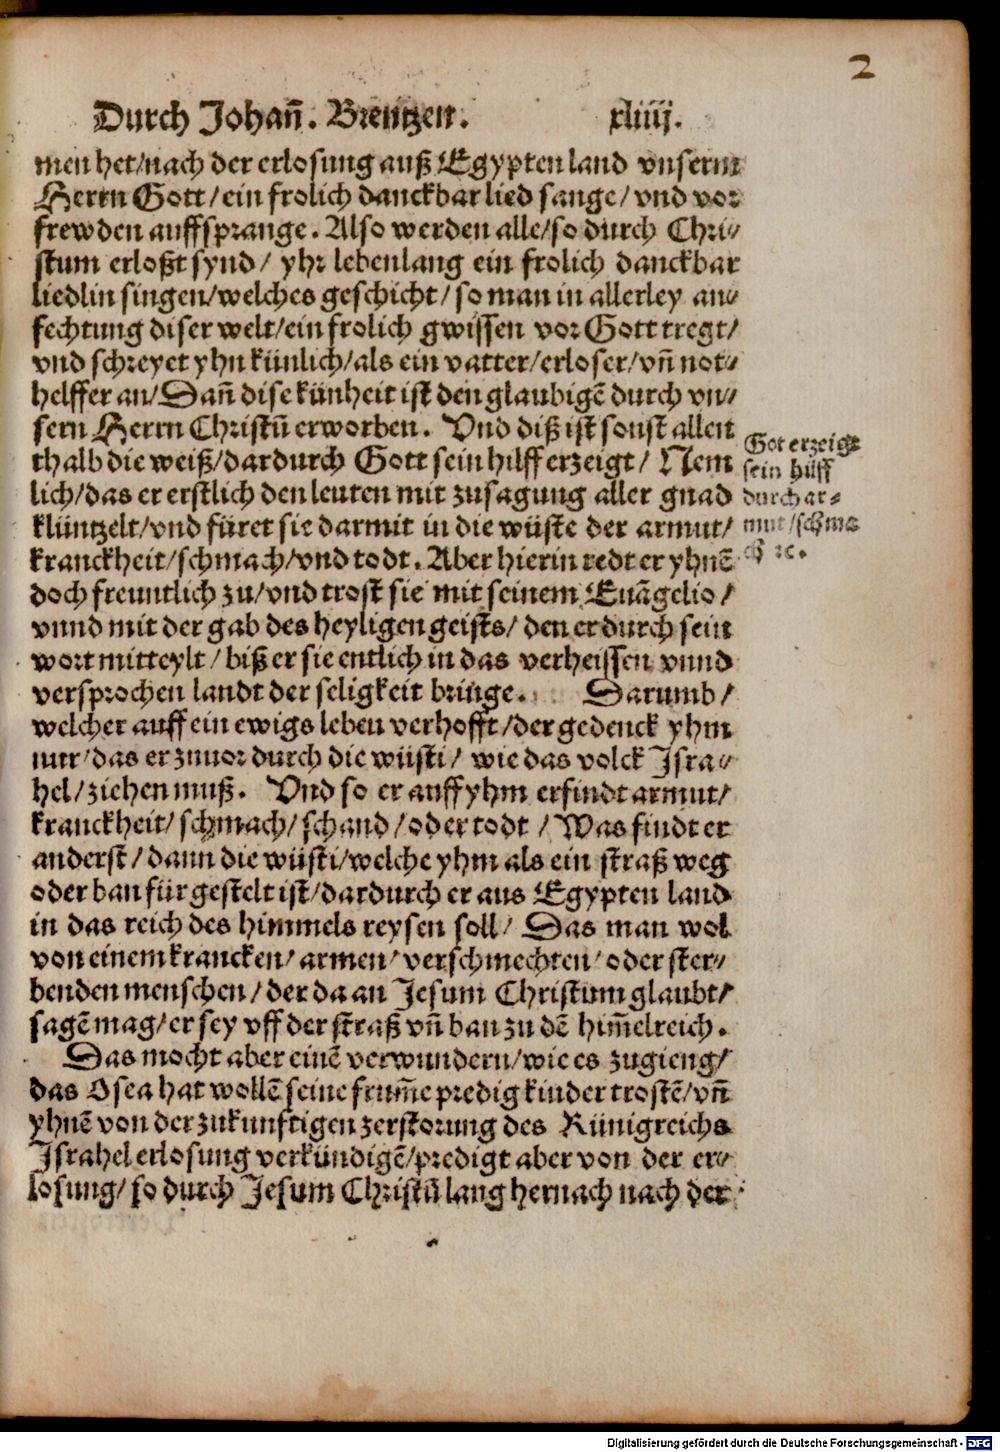 2
Durch Johañ. Brentzen. xliiij.
men het/nach der erlosung auß Egypten land vnserm
Herrn Gott/ein frolich danckbar lied sange/vnd vor
frewden auffsprange. Also werden alle/so durch Chri⸗
stum erloßt synd/ yhr lebenlang ein frolich danckbar
liedlin singen/welches geschicht/so man in allerley an⸗
fechtung diser welt/ein frolich gwissen vor Gott tregt/
vnd schreyet yhn künlich/als ein vatter/erloser/vñ not⸗
helffer an/Dañ dise künheit ist den glaubigẽ durch vn⸗
sern Herrn Christũ erworben. Vnd diß ist sonst allen
thalb die weiß/dardurch Gott sein hilff erzeigt/ Nem
lich/das er erstlich den leuten mit zusagung aller gnad
klüntzelt/vnd füret sie darmit in die wüste der armut/
kranckheit/schmach/vnd todt. Aber hierin redt er yhnẽ
doch freuntlich zu/vnd trost sie mit seinem Euãgelio/
vnnd mit der gab des heyligen geists/ den er durch sein
wort mitteylt/ biß er sie entlich in das verheissen vnnd
versprochen landt der seligkeit bringe. Darumb/
welcher auff ein ewigs leben verhofft/der gedenck yhm
nur/das er zuuor durch die wüsti/ wie das volck Isra⸗
hel/ziehen muß. Vnd so er auff yhm erfindt armut/
kranckheit/schmach/schand/oder todt/Was findt er
anderst/dann die wüsti/welche yhm als ein straß weg
oder ban für gestelt ist/dardurch er aus Egypten land
in das reich des himmels reysen soll/ Das man wol
von einem krancken/armen/verschmechten/oder ster⸗
benden menschen/der da an Jesum Christum glaubt/
sagẽ mag/er sey vff der straß vñ ban zu dẽ him̃elreich.
Das mocht aber einẽ verwundern/wie es zugieng/
das Osea hat wollẽ seine frum̃e predig kinder trostẽ/vñ
yhnẽ von der zukunftigen zerstorung des Künigreichs
Israhel erlosung verkündigẽ/predigt aber von der er⸗
losung/so durch Jesum Christũ lang hernach nach der
Got erzeigt
sein hilff
durch ar⸗
mut/schma
ch ꝛc.
Digitalisierung gefördert durch die Deutsche Forschungsgemeinschaft - DFG